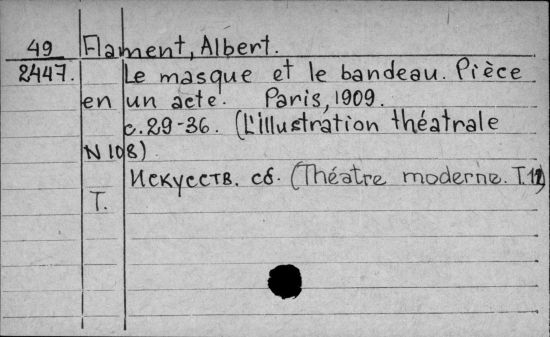 49 Flament, Albert.
2447. Le masque et le bandeau. Pièce
en un acte. Paris, 1909.
c. 29-36. (L'illustration théatrale
N 108)
Искусств. сб. (Théatre moderne. T. 12)
T.